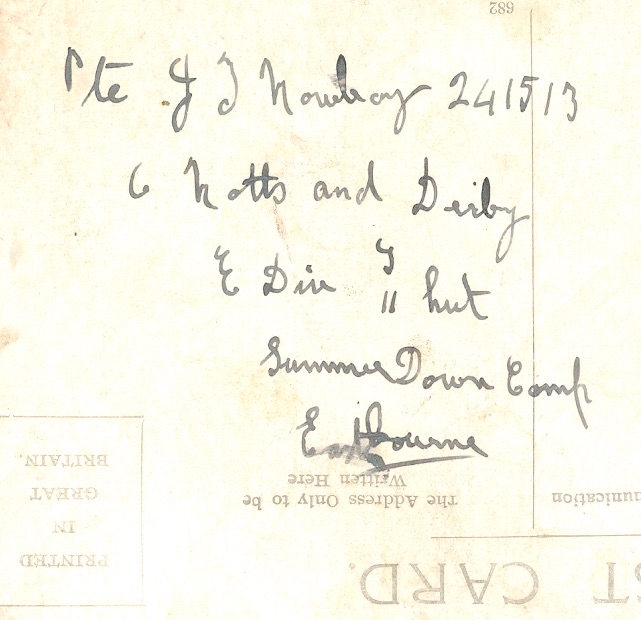 682
Pte J J Mowbray 241513
6 Notts and Derby
E Div J 11 hut
Summer Down Camp
Eastbourne
The Address Only to be
Written Here
PRINTED
IN
GREAT
BRITAIN.
ST CARD.